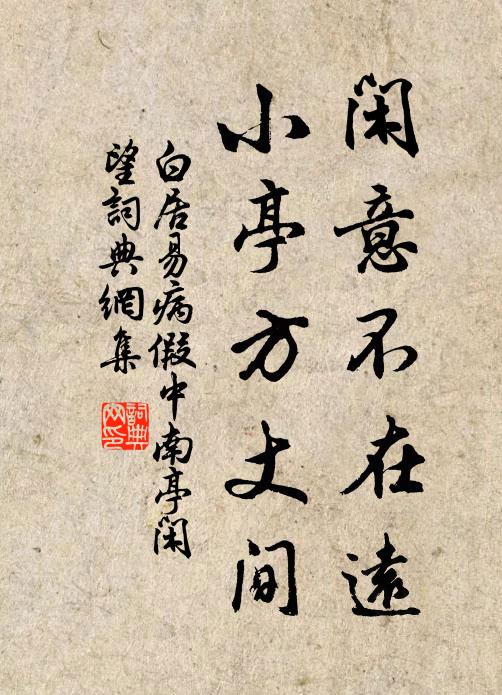 閑意不在遠
小亭方丈間
白居易病假中南亭閑
望詞典網集
詞典
网印